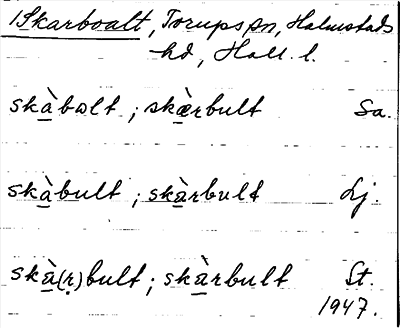 1Skarboalt, Torups sn, Halmstads
hd, Hall. l.
skà̱bɷlt ; skæ̱̀rbult Sa.
skà̱bult ; skà̱rbult Lj.
skà̱(r̤)bult ; skà̱rbult St.
1947.